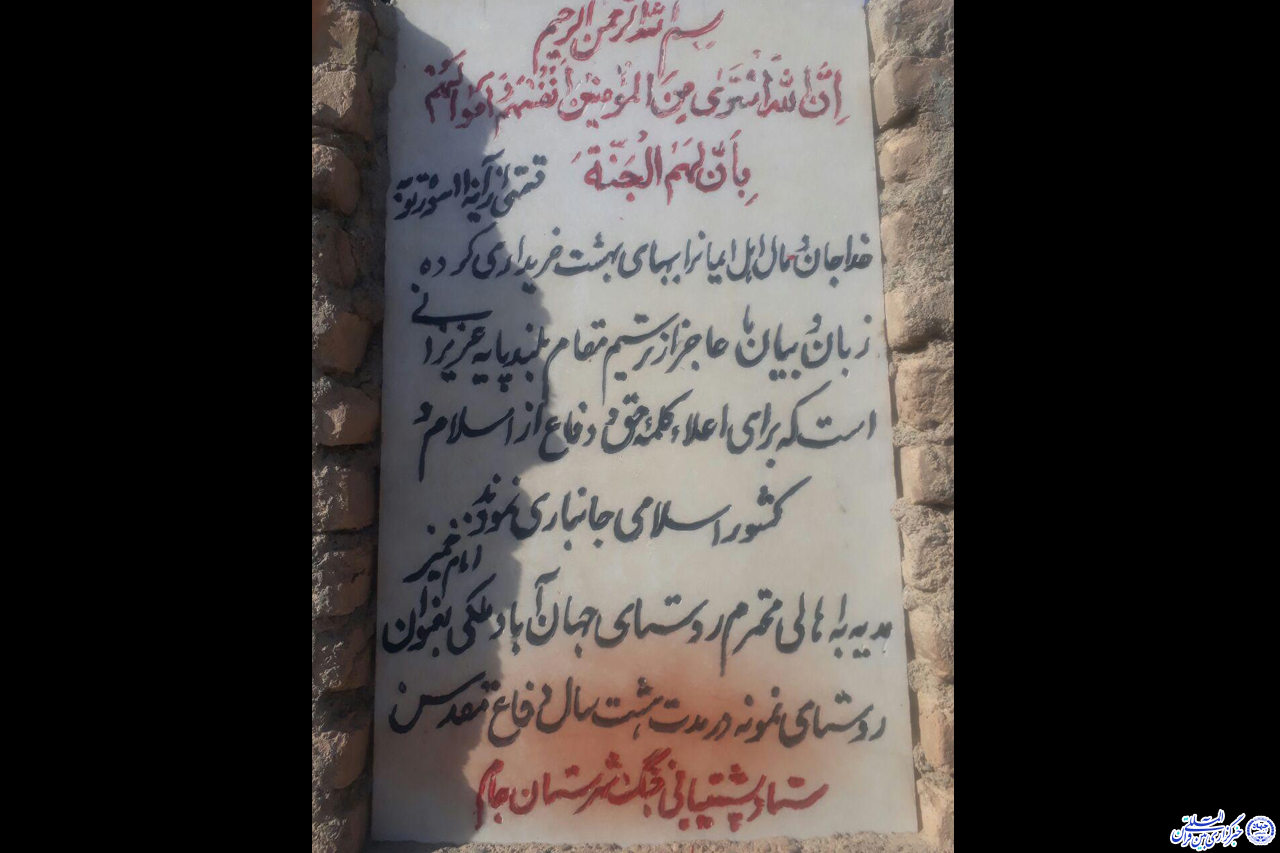 بسم الله الرحمن الرحیم
اِنَّ اللهَ اشْتَرَیٰ مِنَ المُؤمِنینَ اَنْفُسَهُمْ وَ اَمْوالَهُمْ
بِاَنَّ لَهُمُ الْجَنَّةَ
قسمتی از آیه ۱۱۱ سوره توبه
خدا جان و مال اهل ایمانرا ببهای بهشت خریداری کرده
زبان و بیان ها عاجز از ترسیم مقام بلند پایه عزیزانی
است که برای اعلاء کلمهٔ حق و دفاع از اسلام و
کشور اسلامی جانبازی نمودند
امام خمینی
هدیه به اهالی محترم روستای جهان آباد ملکی بعنوان
روستای نمونه در مدت هشت سال دفاع مقدس
ستاد پشتیبانی جنگ شهرستان جام
خبرگزاری بین المللی قرآن